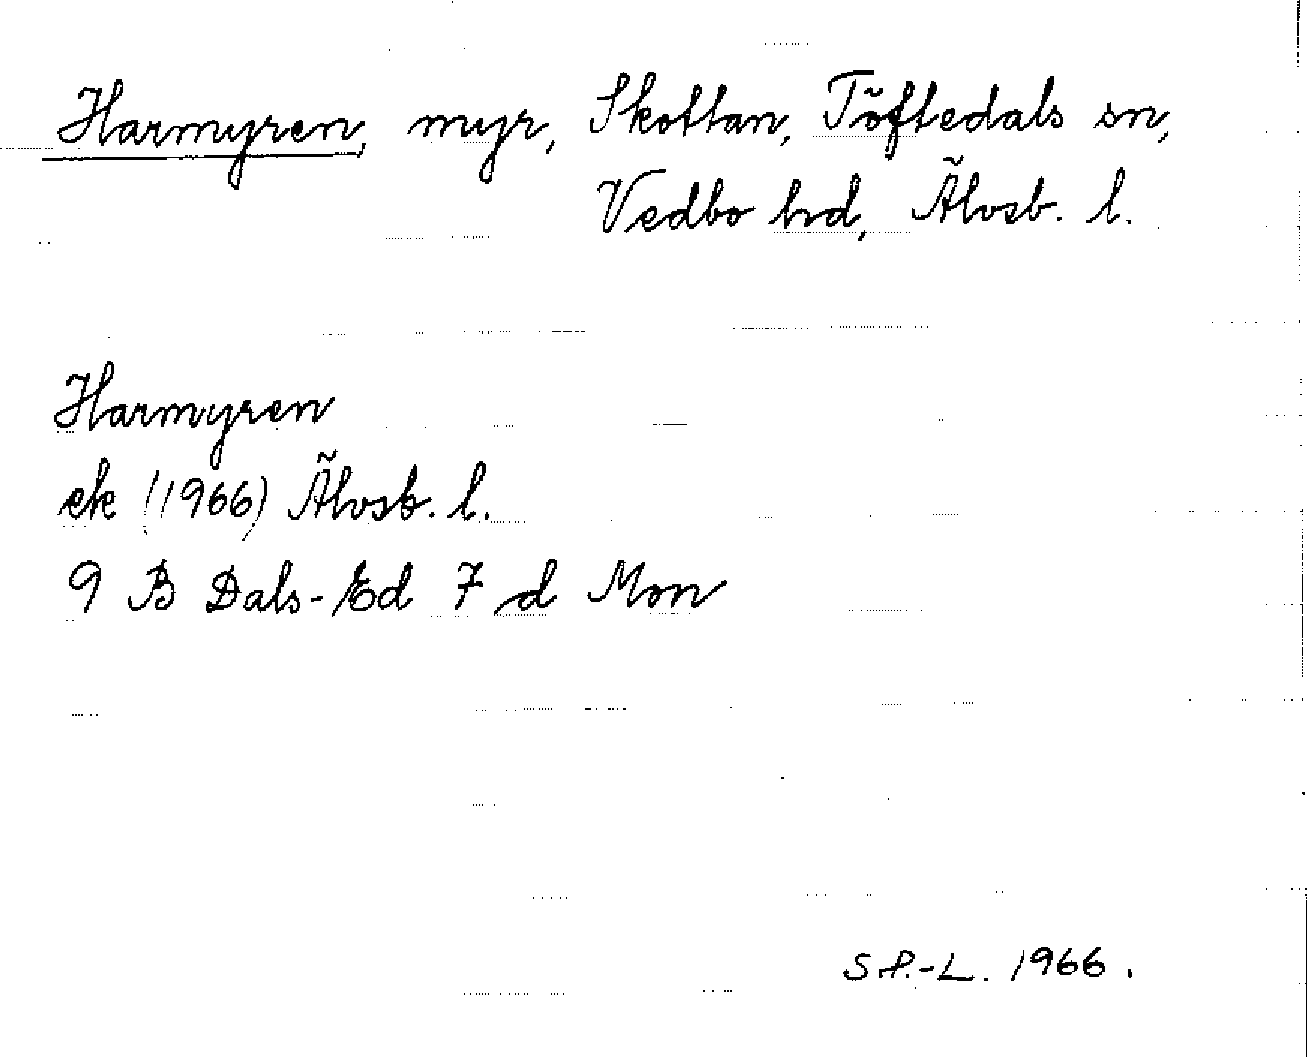 Harmyren, myr, Skottan, Töftedals sn,
Vedbo hd, Älvsb. l.
Harmyren
ek (1966) Älvsb. l.
9 B Dals-Ed 7 d Mon
S P.-L. 1966.